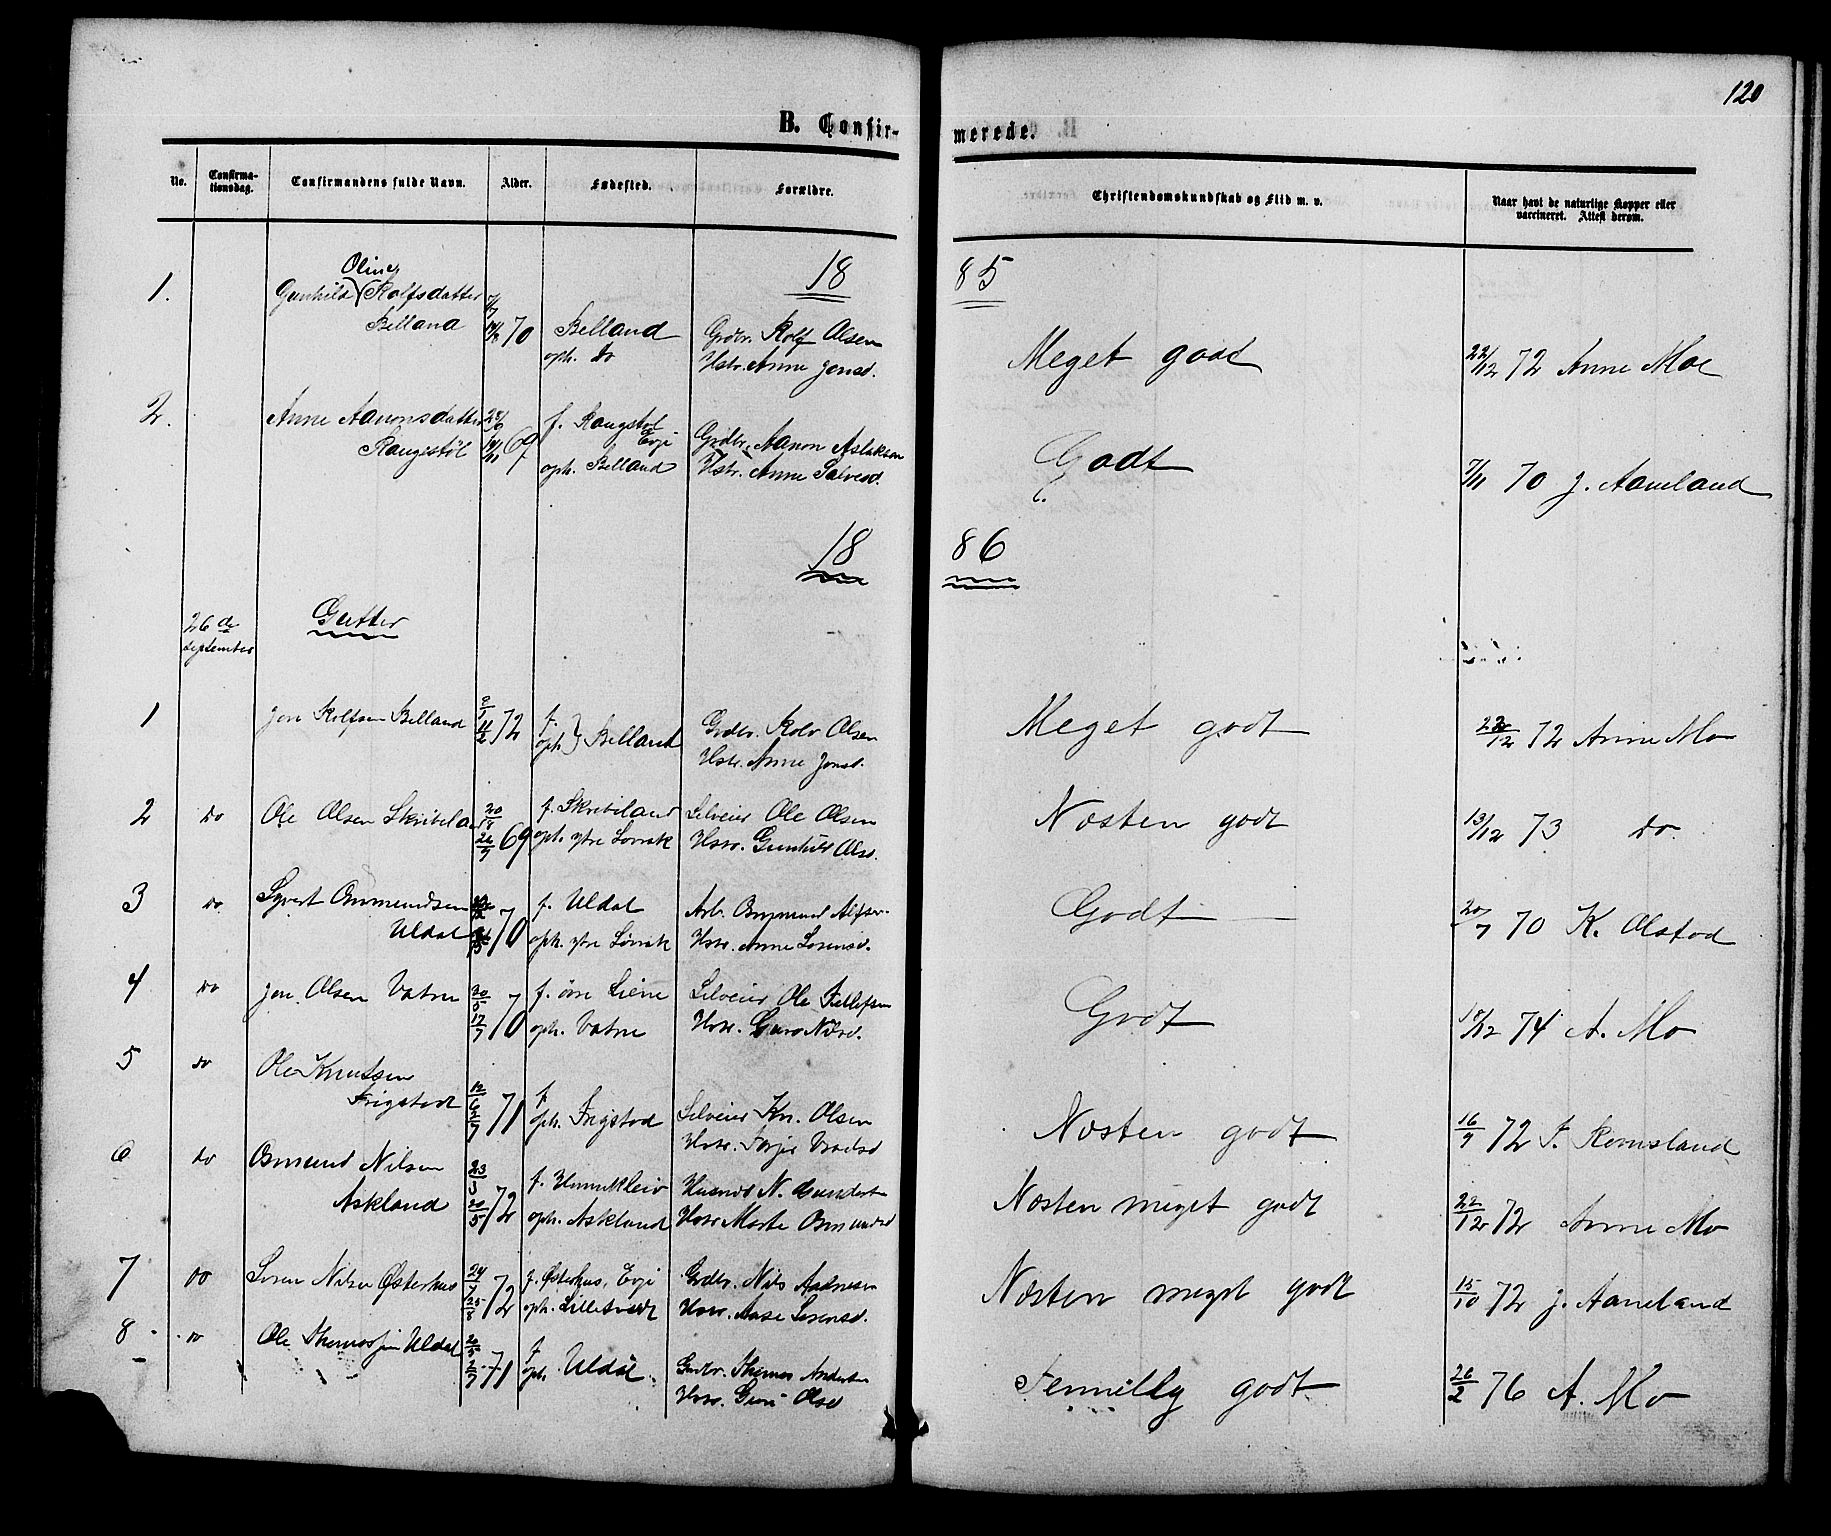 120
B. Confir-
merede.
No.
Confirma-
tionsdag.
Confirmandens fulde Navn.
Alder.
Fødested.
Forældre.
Christendomskundskab og Flid m. v.
Naar havt de naturlige Kopper eller
vaccineret. Attest derom.
18
85
1.
Oline
Gunhild Rolfsdatter
Belland
70
Belland
oph. do
Grdbr. Rolf Olsen
Hstr. Anne Jonsd.
Meget godt
22/12 72 Anne Moe
2.
Anne Aanonsdatter
Raugstøl
69
f. Raugstøl
Evje
oph. Belland
Grdbr. Aanon Aslaksen
Hstr. Anne Salvesd.
Godt
7/11 70 J. Aaneland
18
86
26de
September
Gutter
1
Jon Rolfsen Belland
72
f.
oph. } Belland
Grdbr. Rolv Olsen
Hstr. Anne Jonsd.
Meget godt
22/12 72 Anne Mo
2
do
Ole Olsen Skribeland
69
f. Skribeland
oph. ytre
Selveier Ole Olsen
Hstr. Gunhild Olsd.
Næsten godt
13/12 73 do
3
do
Syvert Osmundsen
Uldal
70
f. Uldal
oph. ytre
Arb. Osmund
Hstr. Anne Sørensd.
Godt
20/7 70 K. Olstad
4
do
Jon Olsen Vatne
20/5
17/7 70
f. øvre
oph. Vatne
Selveier Ole Tellefsen
Hstr. Guro Nilsd.
Godt
74 A. Mo
5
do
Ole Knutsen
Frigstad
71
f.
oph. Frigstad
Selveier Kn. Olsen
Hstr.
Næsten godt
16/9 72 T. Romsland
6
do
Osmund Nilsen
Askland
20/5 72
f.
oph. Askland
Husmd N. Gunders
Hstr Marte Osmundsd
Næsten meget godt
22/12 72 Anne Mo
7
do
Søren Nilsen Østerhus
72
f. Østerhus, Evje
oph.
Grdbr. Nils
Hstr. Aase Sørensd.
Næsten meget godt
15/10 72 J. Aaneland
8
do
Ole Thomassen Uldal
71
f.
oph. Uldal
Grdbr. Thomas Anders
Hstr. Guri Olsd
Temmelig godt
26/2 76 A. Mo